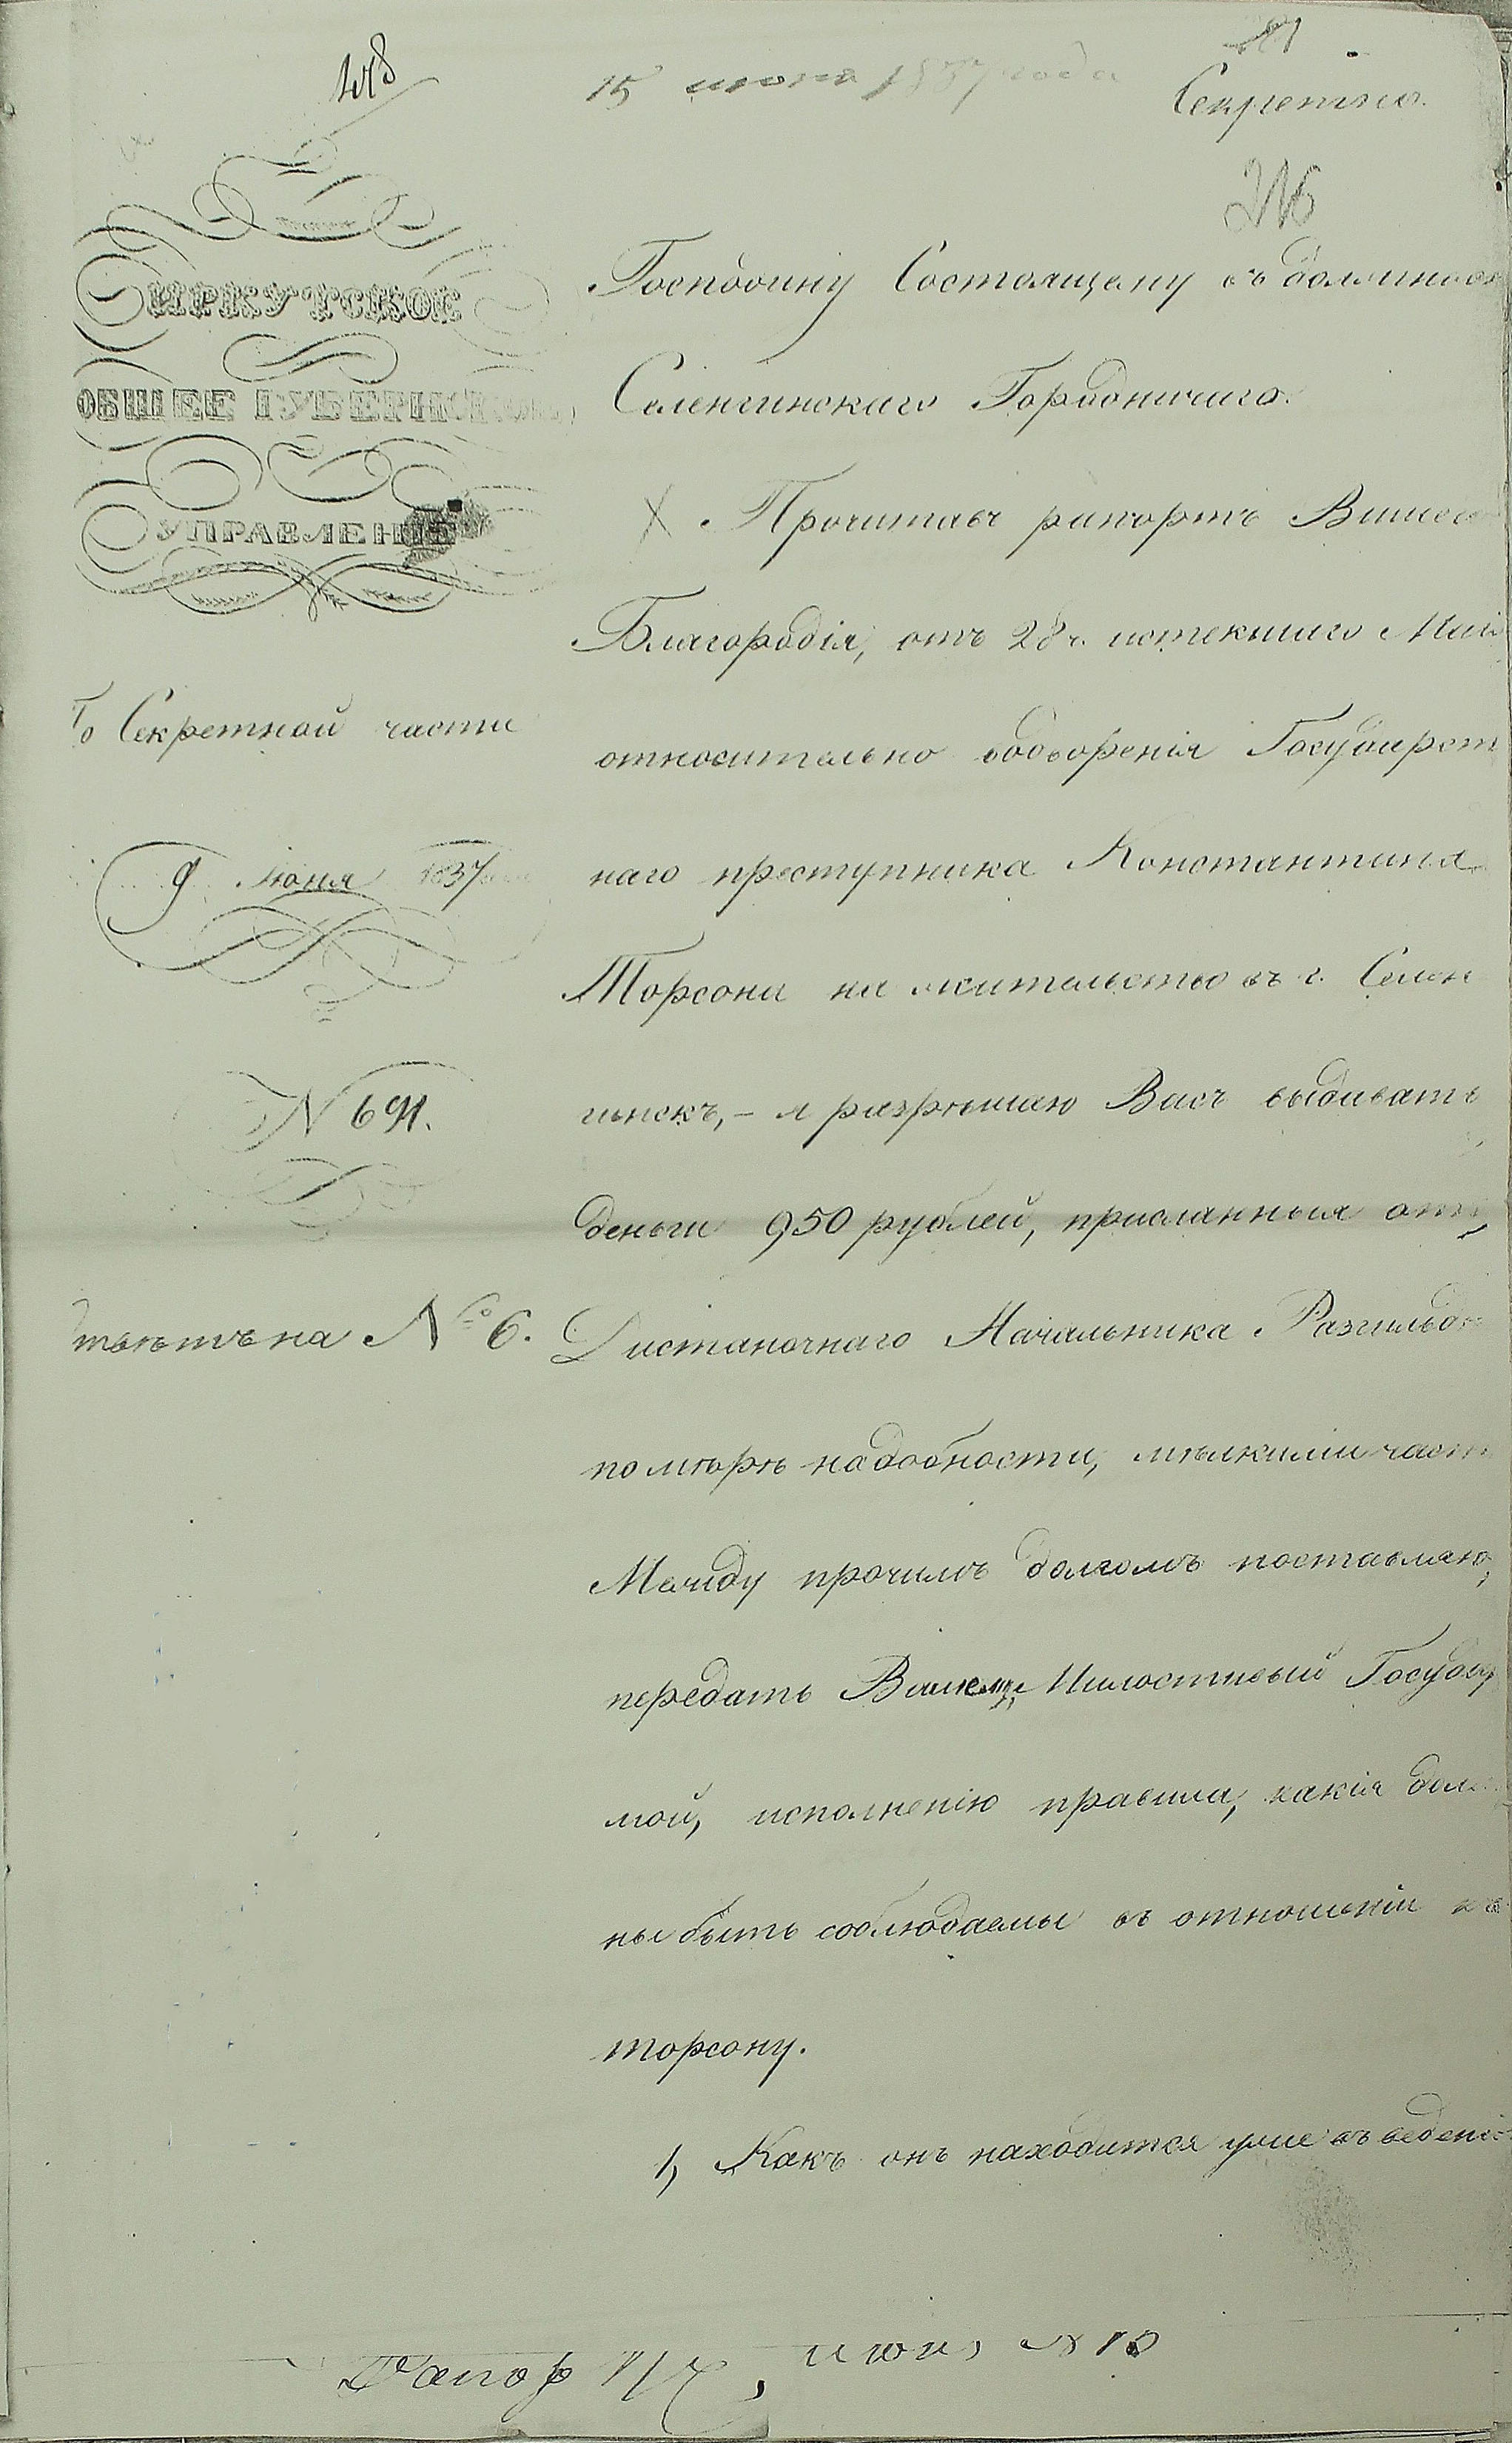 15 июня 1837 года
Секретно.
216
ИРКУТСКОЕ
ОБЩЕЕ ГУБЕРНСКОЕ
УПРАВЛЕНІЕ
По Секретной части
9 Июня 1837
N 691.
тветъ на № 6.
Господину Состоящему въ должнос
Селенгинскаго Городничаго.
Прочитавъ рапортъ Вашего
Благородія, отъ 28 ч. истекшаго Маія
относительно водворенія Государст
наго преступника Константина
Торсона на жительство въ г. Селен
гинскъ, – я разрѣшаю Васъ выдавать
деньги 950 рублей, присланныя отъ
Дистаночнаго Начальника Разгильдѣ
по мѣрѣ надобности, мѣлкими част
Между прочимъ долгомъ поставляю,
передать Вамъ, Милостивый Государ
мой, исполнению правила, какія долж
ны быть соблюдаемы въ отношеніи къ
торсону.
1, Какъ онъ находится уже въ веденіи